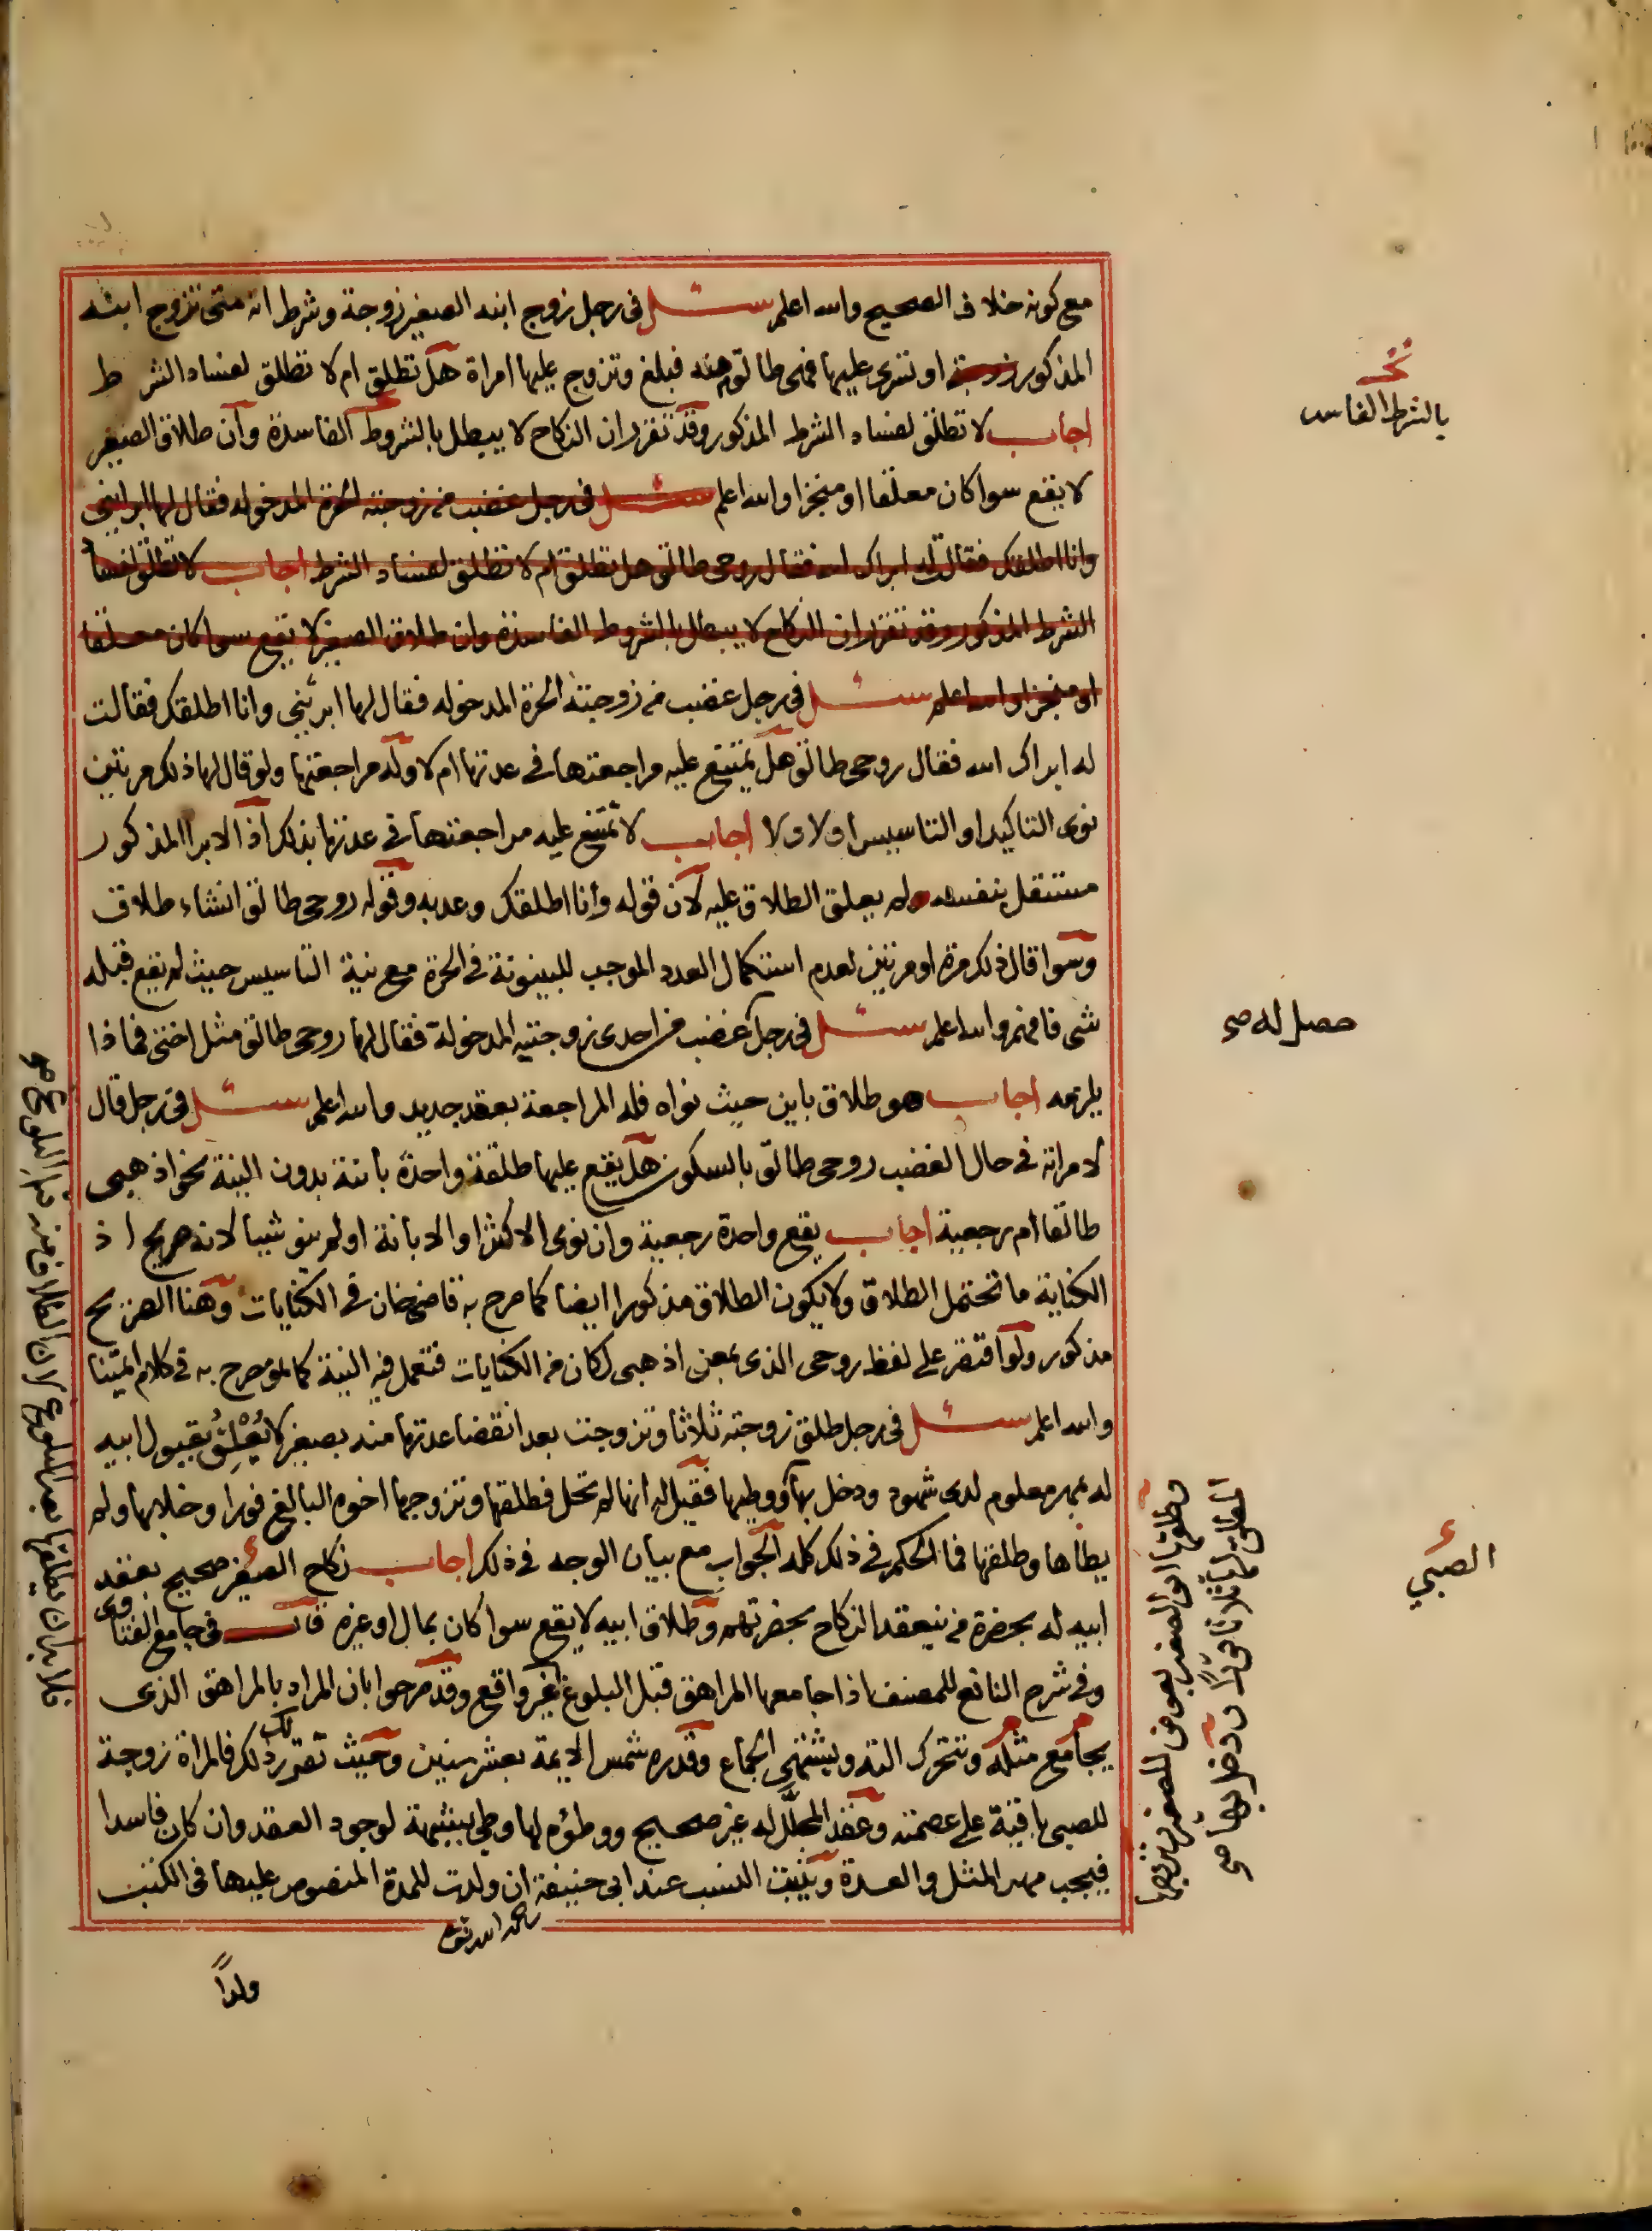 مع كونه خلاف الصحيح والله اعلم سئل في رجل زوج ابنه الصغير زوجة وشرط انه متى تزوج ابنه
المذكور زوجة او تسرى عليها فهى طالق منه فبلغ وتزوج عليها امراة هل تطلق ام لا تطلق لفساد الشرط
اجاب لا تطلق لفساد الشرط المذكور وقد تقرر ان النكاح لا يبطل بالشروط الفاسدة وان طلاق الصغير
لا يقع سوا كان معلقا او منجزا والله اعلم سئل في رجل غضب من زوجته الحرة المدخوله فقال لها ابرئينى
وانا اطلقك فقالت له ابراك الله فقال روحى طالق هل تطلق ام لا تطلق لفساد الشرط اجاب لا تطلق لفساد
الشرط المذكور وقد تقرر ان النكاح لا يبطل بالشروط الفاسدة وان طلاق الصغير لا يقع سوا كان معلقا
او منجزا والله اعلم سئل في رجل غضب من زوجته الحرة المدخوله فقال لها ابرئينى وانا اطلقك فقالت
له ابراك الله فقال روحى طالق هل يمتنع عليه مراجعتها في عدتها ام لا وله مراجعتها ولو قال لها ذلك مرتين
نوى التاكيد او التاسيس او لا ولا اجاب لا تمتنع عليه مراجعتها في عدتها بذلك اذ الابرا المذكور
مستقل بنفسه ولم يعلق الطلاق عليه لان قوله وانا اطلقك وعد به وقوله روحى طالق انشاء طلاق
وسوا قال ذلك مرة او مرتين لعدم استكمال العدد الموجب للبينونة في الحرة مع نية التاسيس حيث لم يقع قبله
شى فافهم والله اعلم سئل في رجل غضب من احدى زوجتيه المدخولة فقال لها روحى طالق مثل اختى فماذا
يلزمه اجاب هو طلاق باين حيث نواه فله المراجعة بعقد جديد والله اعلم سئل في رجل قال
لامراته في حال الغضب روحى طالق بالسكون هل يقع عليها طلقة واحدة بائنة بدون النية نحو اذهبى
طالقا ام رجعية اجاب يقع واحدة رجعية وان نوى الاكثر او الابانة او لم ينو شيا لانه صريح اذ
الكناية ما تحتمل الطلاق ولا يكون الطلاق مذكورا ايضا كما صرح به قاضى خان في الكنايات وهنا الصريح
مذكور ولو اقتصر على لفظ روحى الذى بمعنى اذهبى لكان من الكنايات فتعمل فيه النية كما هو مصرح به في كلام ايمتنا
والله اعلم سئل في رجل طلق زوجته ثلاثا وتزوجت بعد انقضا عدتها منه بصغير لا بقبول ابيه
له بمهر معلوم لدى شهود ودخل بها ووطيها فقيل له انها لم تحل فطلقها وتزوجها اخوه البالغ فورا وخلا بها ولم
يطأها وطلقها فما الحكم في ذلك كله الجواب مع بيان الوجه في ذلك اجاب نكاح الصغير صحيح بعقد
ابيه له بحضرة من ينعقد النكاح بحضرتهم وطلاق ابيه لا يقع سوا كان بمال او غيره قال في جامع الفتاوى
وفي شرح النافع للمصنف اذا جامعها المراهق قبل البلوغ واقع وقد صرحوا بان المراد بالمراهق الذى
يجامع مثله وتتحرك التة ويشتهى الجماع وقدره شمس الايمة بعشر سنين وحيث تقرر لك ذلك فالمراة زوجة
للصبى باقية على عصمته وعقد المحلل له غير صحيح ووطؤه لها وطى بشبهة لوجود العقد وان كان فاسدا
فيجب مهر المثل والعدة ويثبت النسب عند ابى حنيفة ان ولدت للمدة المنصوص عليها في الكتب
رحمه الله تعالى
ولدا
بالشرط الفاسد
حصل له صح
الصبي
وطلقها ابو الصغير بعوض للصغير
المطلق لها ثلاثا ودخل بها صح